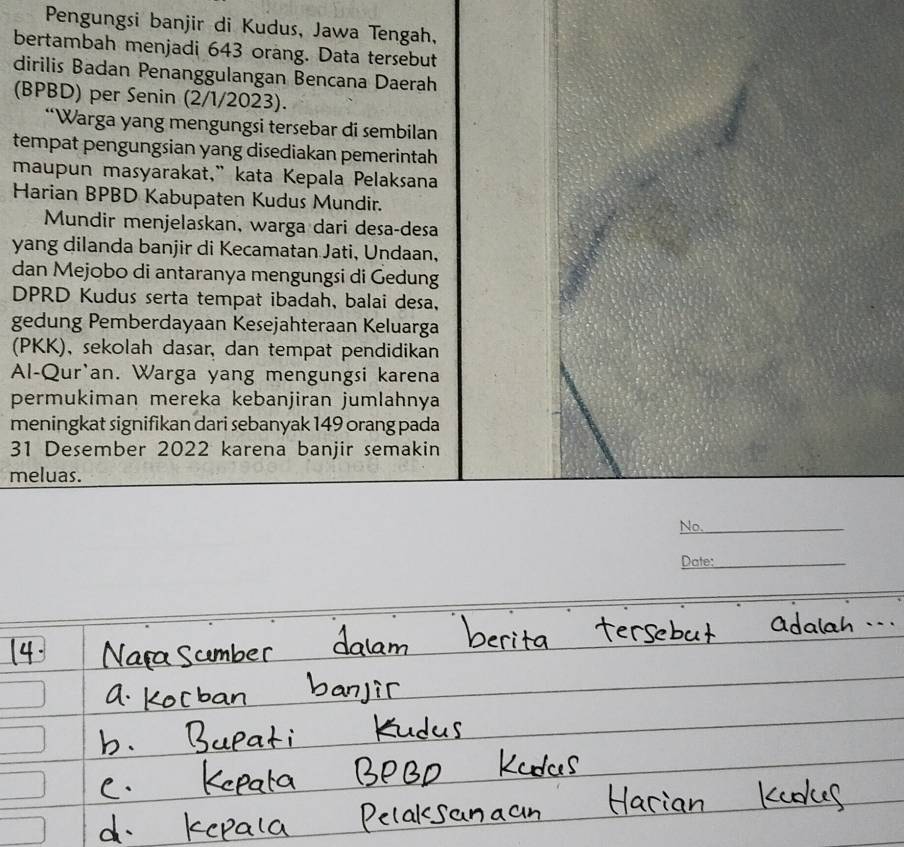 Pengungsi banjir di Kudus, Jawa Tengah,
bertambah menjadi 643 orang. Data tersebut
dirilis Badan Penanggulangan Bencana Daerah
(BPBD) per Senin (2/1/2023).
“Warga yang mengungsi tersebar di sembilan
tempat pengungsian yang disediakan pemerintah
maupun masyarakat,” kata Kepala Pelaksana
Harian BPBD Kabupaten Kudus Mundir.
Mundir menjelaskan, warga dari desa-desa
yang dilanda banjir di Kecamatan Jati, Undaan,
dan Mejobo di antaranya mengungsi di Gedung
DPRD Kudus serta tempat ibadah, balai desa,
gedung Pemberdayaan Kesejahteraan Keluarga
(PKK), sekolah dasar, dan tempat pendidikan
Al-Qur'an. Warga yang mengungsi karena
permukiman mereka kebanjiran jumlahnya
meningkat signifikan dari sebanyak 149 orang pada
31 Desember 2022 karena banjir semakin
meluas.
No.
Date:
14. Narasumber dalam berita tersebut adalah...
a. Korban banjir
b. Bupati Kudus
c. Kepala BPBD Kudus
d. Kepala Pelaksanaan Harian Kudus